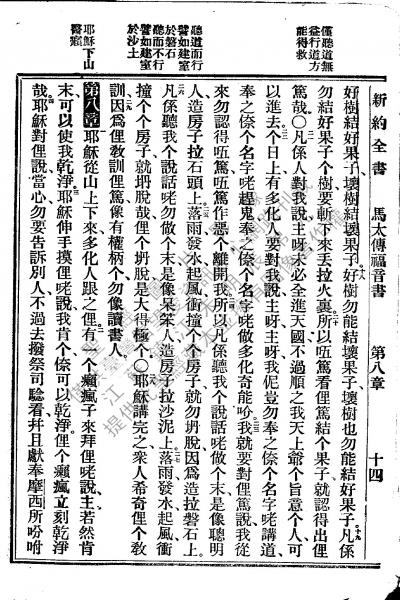 新約全書 馬太傳福音書 第八章 十四
僅聽道無
益行道方
能得救
聽道而行
譬如建室
於磐石
聽而不行
譬如建室
於沙土
耶穌下山
醫癩
好樹結好果子壞樹結壞果子、十八好樹勿能結壞果子壞樹也勿能結好果子、十九凡係
勿結好果子个樹要斬下來丟拉火裏、所以篤看俚篤結个果子就認得出俚
篤哉〇凡係人對我說主呀主呀未必全進天國不過順之我天上爺个旨意个人可
以進去个日上有多化人要對我說主呀主呀我伲豈勿奉之倷个名字咾講道、
奉之倷个名字咾趕鬼奉之倷个名字咾做多化奇能呤我就要對俚篤說我從
來勿認得篤篤作惡个離開我所以凡係聽我个說話咾做个末是像聰明
人造房子拉石頭上、落雨發水起風衝撞个个房子就勿坍脫因爲造拉磐石上、
凡係聽我个說話咾勿做个末是像呆笨人造房子拉沙泥上、落雨發水起風衝
撞个个房子就坍脫哉俚个坍脫是大得極个〇耶穌講完之衆人希奇俚个敎
訓因爲俚敎訓俚篤像有權柄个勿像讀書人
第八章 耶穌從山上下來多化人跟之俚有一个癩瘋子來拜俚咾說主若然肯
末可以使我乾淨、耶穌伸手摸俚咾說我肯个倷可以乾淨俚个癩瘋立刻乾淨
哉、耶穌對俚說當心勿要告訴別人不過去撥祭司騐看幷且獻奉摩西所吩咐